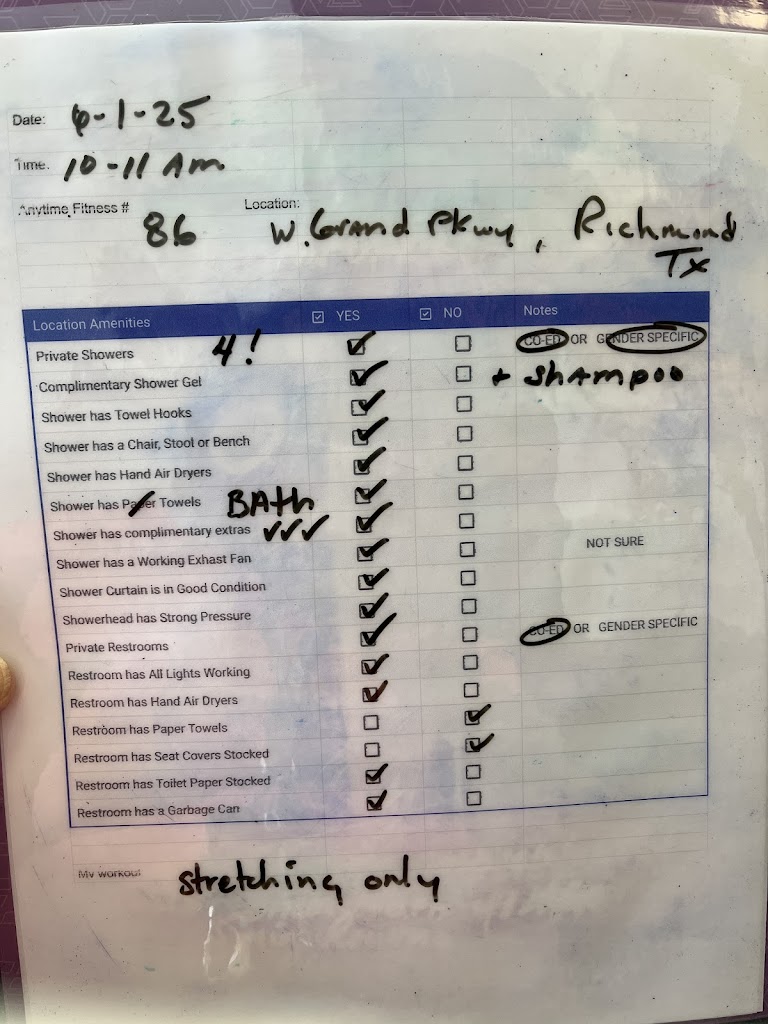 Date: 6-1-25
Time. 10-11 Am
Anytime Fitness # 86 Location: W. Grand Pkwy, Richmond
Tx
Location Amenities YES NO Notes
Private Showers 4! CO-ED OR GENDER SPECIFIC
Complimentary Shower Gel + Shampoo
Shower has Towel Hooks
Shower has a Chair, Stool or Bench
Shower has Hand Air Dryers
Shower has Paper Towels BAth
Shower has complimentary extras ✓✓✓
Shower has a Working Exhast Fan NOT SURE
Shower Curtain is in Good Condition
Showerhead has Strong Pressure
Private Restrooms CO-ED OR GENDER SPECIFIC
Restroom has All Lights Working
Restroom has Hand Air Dryers
Restroom has Paper Towels
Restroom has Seat Covers Stocked
Restroom has Toilet Paper Stocked
Restroom has a Garbage Can
My workout stretching only